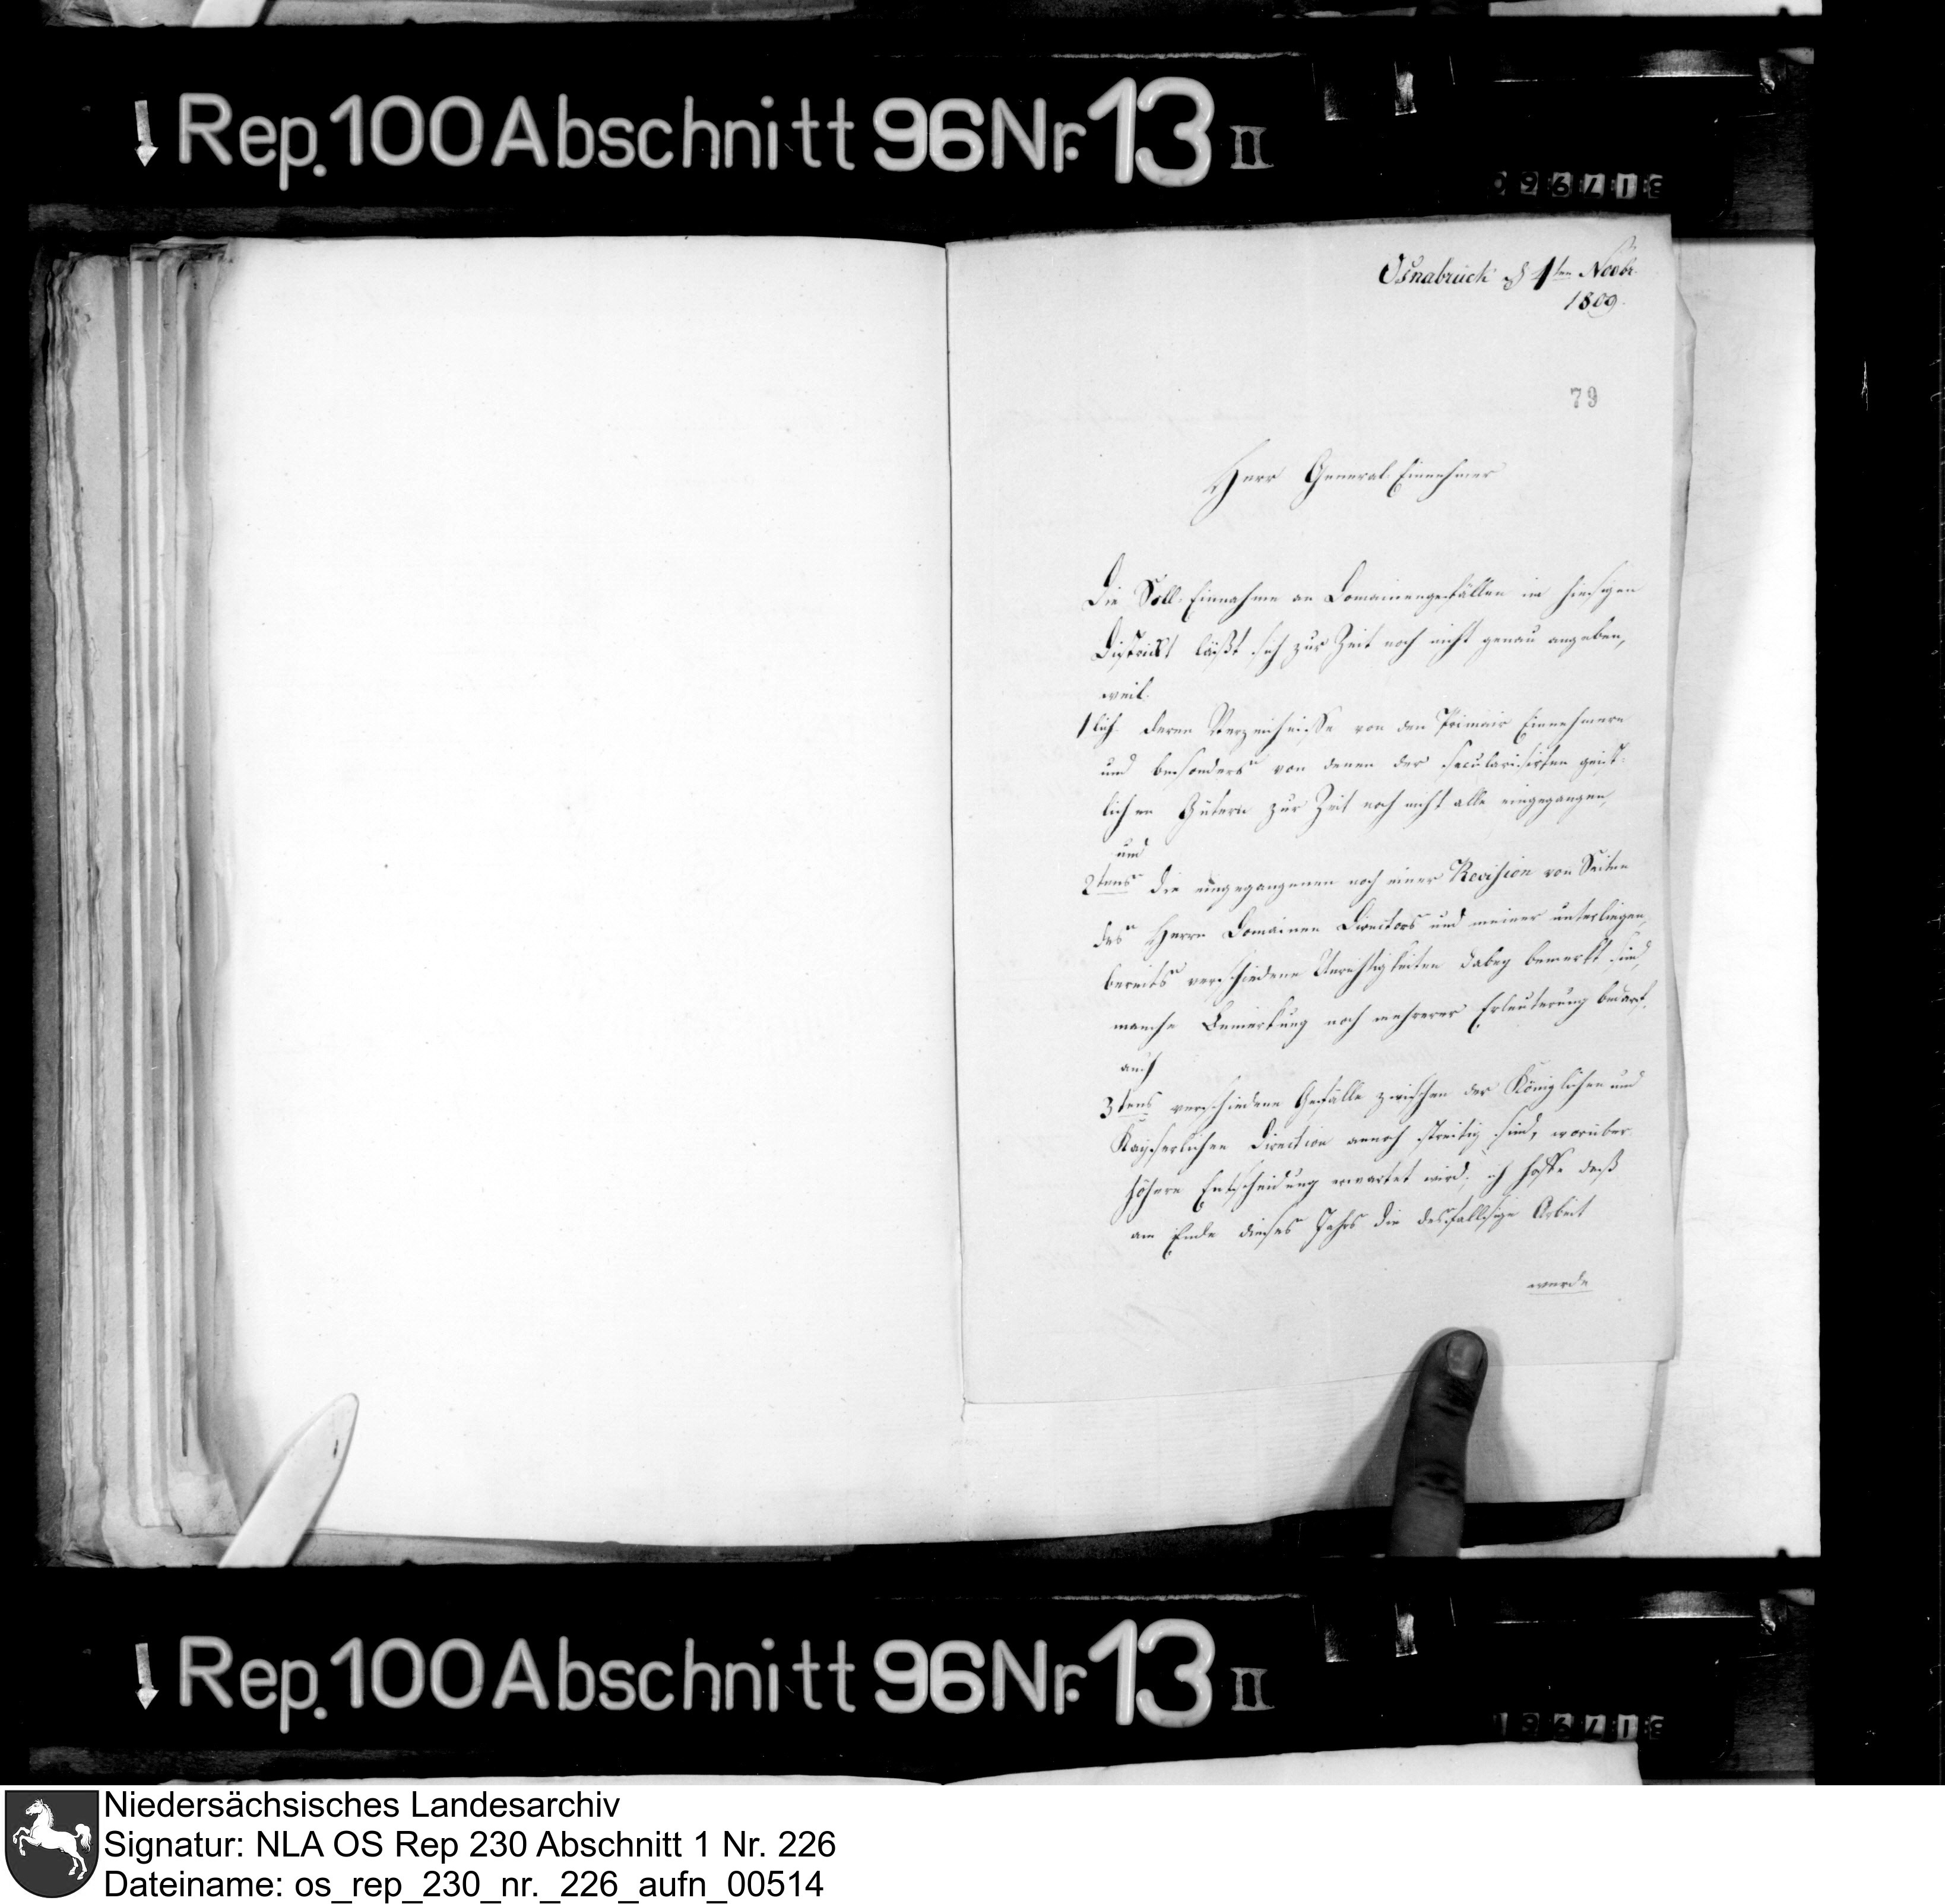 Rep. 100 Abschnitt 96 Nr. 13 II
Osnabrück d 1ten Novbr.
1809.
79
Herr General-Einnehmer
Die Soll-Einnahme an Domainengefällen im hiesigen
District läßt sich zur Zeit noch nicht genau angeben,
weil.
1lich deren Verzeichnisse von den Primair Einnehmern
und besonders von denen der secularisirten geist-
lichen Gütern zur Zeit noch nicht alle eingegangen,
und
2tens die eingegangenen noch einer Revision von Seiten
des Herrn Domainen Directors und meiner unterliegen,
bereits verschiedene Unrichtigkeiten dabey bemerkt sind,
manche Bemerkung noch mehrerer Erleuterung bedarf,
auch
3tens verschiedene Gefälle zwischen der Königlichen und
Kayserlichen Direction annoch streitig sind, worüber
höhere Entscheidung erwartet wird; ich hoffe daß
am Ende dieses Jahrs die desfallsige Arbeit
werde
Rep. 100 Abschnitt 96 Nr. 13 II
Niedersächsisches Landesarchiv
Signatur: NLA OS Rep 230 Abschnitt 1 Nr. 226
Dateiname: os_rep_230_nr._226_aufn_00514